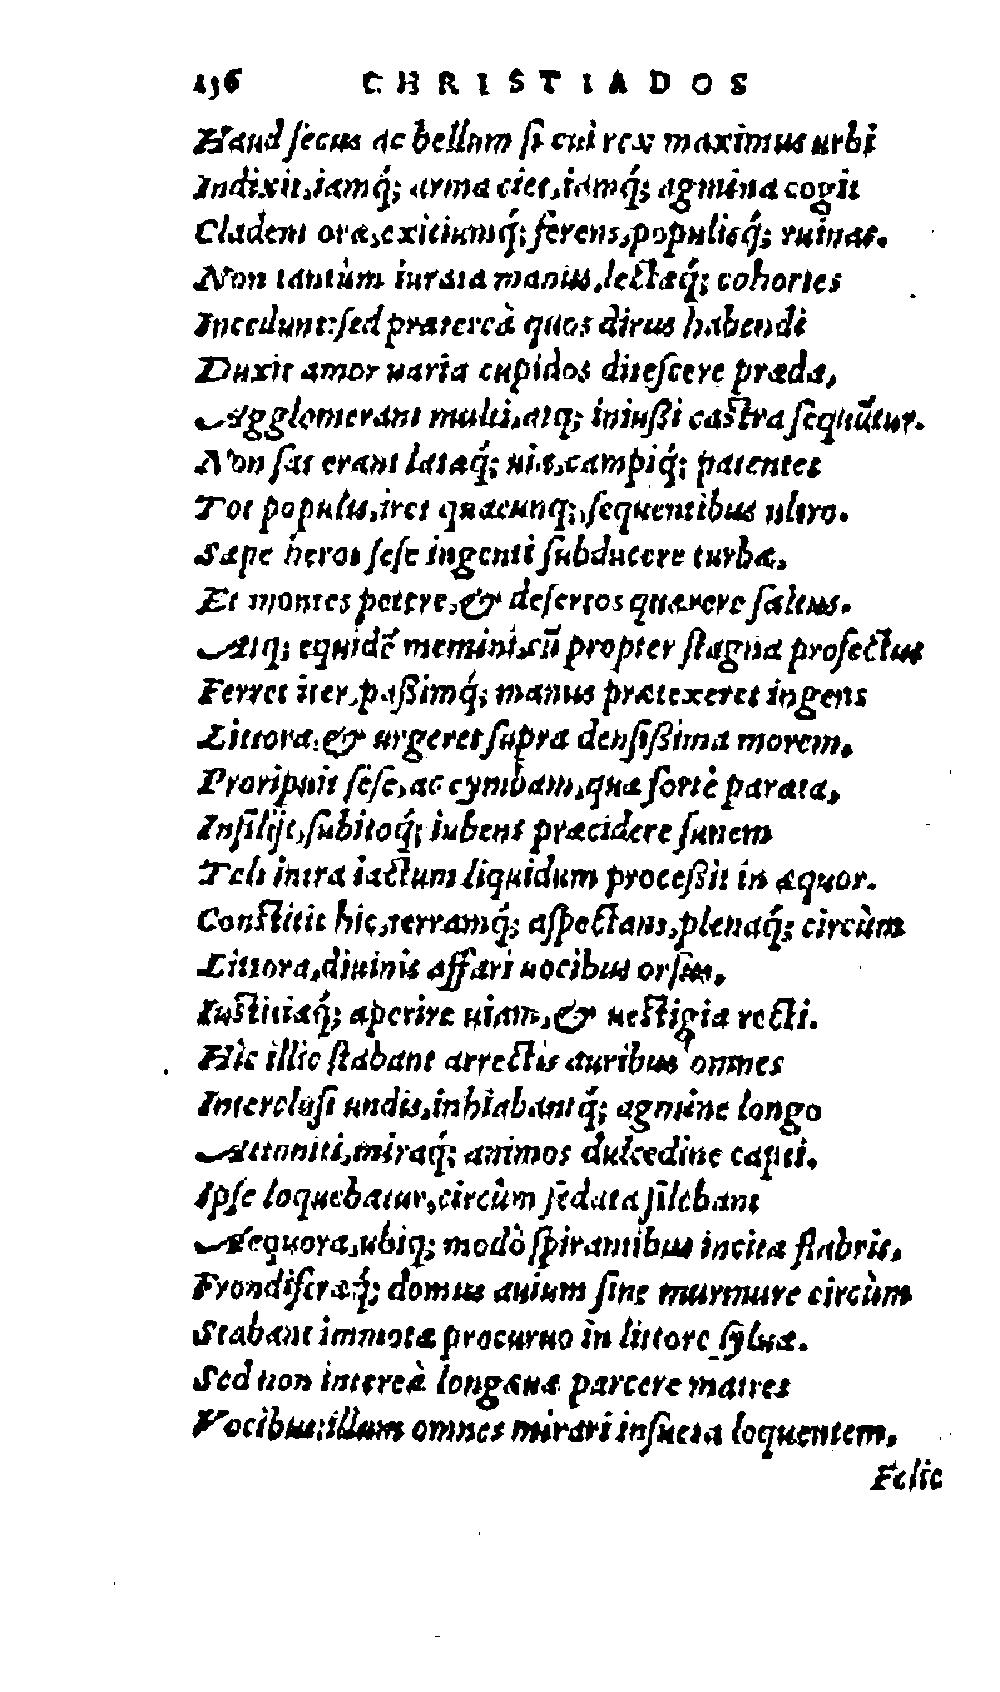 136 CHRISTIADOS
Haud ſecus ac bellum ſi cui rex maximus urbi
Indixit, iamq́; arma ciet, iamq́; agmina cogit
Cladem ora, exitiumq́; ferens, populisq́; ruinas.
Non tantùm iurata manus, lectaq́; cohortes
Incedunt: ſed prætereà quos dirus habendi
Duxit amor uaria cupidos diteſcere præda,
Agglomerant multi, atq; iniußi caſtra ſequũtur.
Non ſat erant lataq́; uiæ, campiq́; patentes
Tot populis, iret quacunq;, ſequentibus ultro.
Sæpe heros ſeſe ingenti ſubducere turbæ,
Et montes petere, & deſertos quærere ſaltus.
Atq; equidẽ memini, cũ propter ſtagna profectus
Ferret iter, paßimq́; manus prætexeret ingens
Littora, & urgeret ſupra denſißima morem,
Proripuit ſeſe, ac cymbam, quæ fortè parata,
Inſilijt, ſubitoq́; iubent præcidere funem
Teli intra iactum liquidum proceßit in æquor.
Conſtitit hic, terramq́; aſpectans, plenaq́; circùm
Littora, diuinis affari uocibus orſus,
Iuſtitiaq́; aperire uiam, & ueſtigia recti.
Hìc illic ſtabant arrectis auribus omnes
Intercluſi undis, inhiabantq́; agmine longo
Attoniti, miraq́; animos dulcedine capti.
Ipſe loquebatur, circùm ſedata ſilebant
Aequora, ubiq; modò ſpirantibus incita flabris,
Frondiferæq́; domus auium ſine murmure circùm
Stabant immotæ procuruo in littore ſyluæ.
Sed non intereà longæuæ parcere matres
Vocibus: illum omnes mirari inſueta loquentem,
Felic